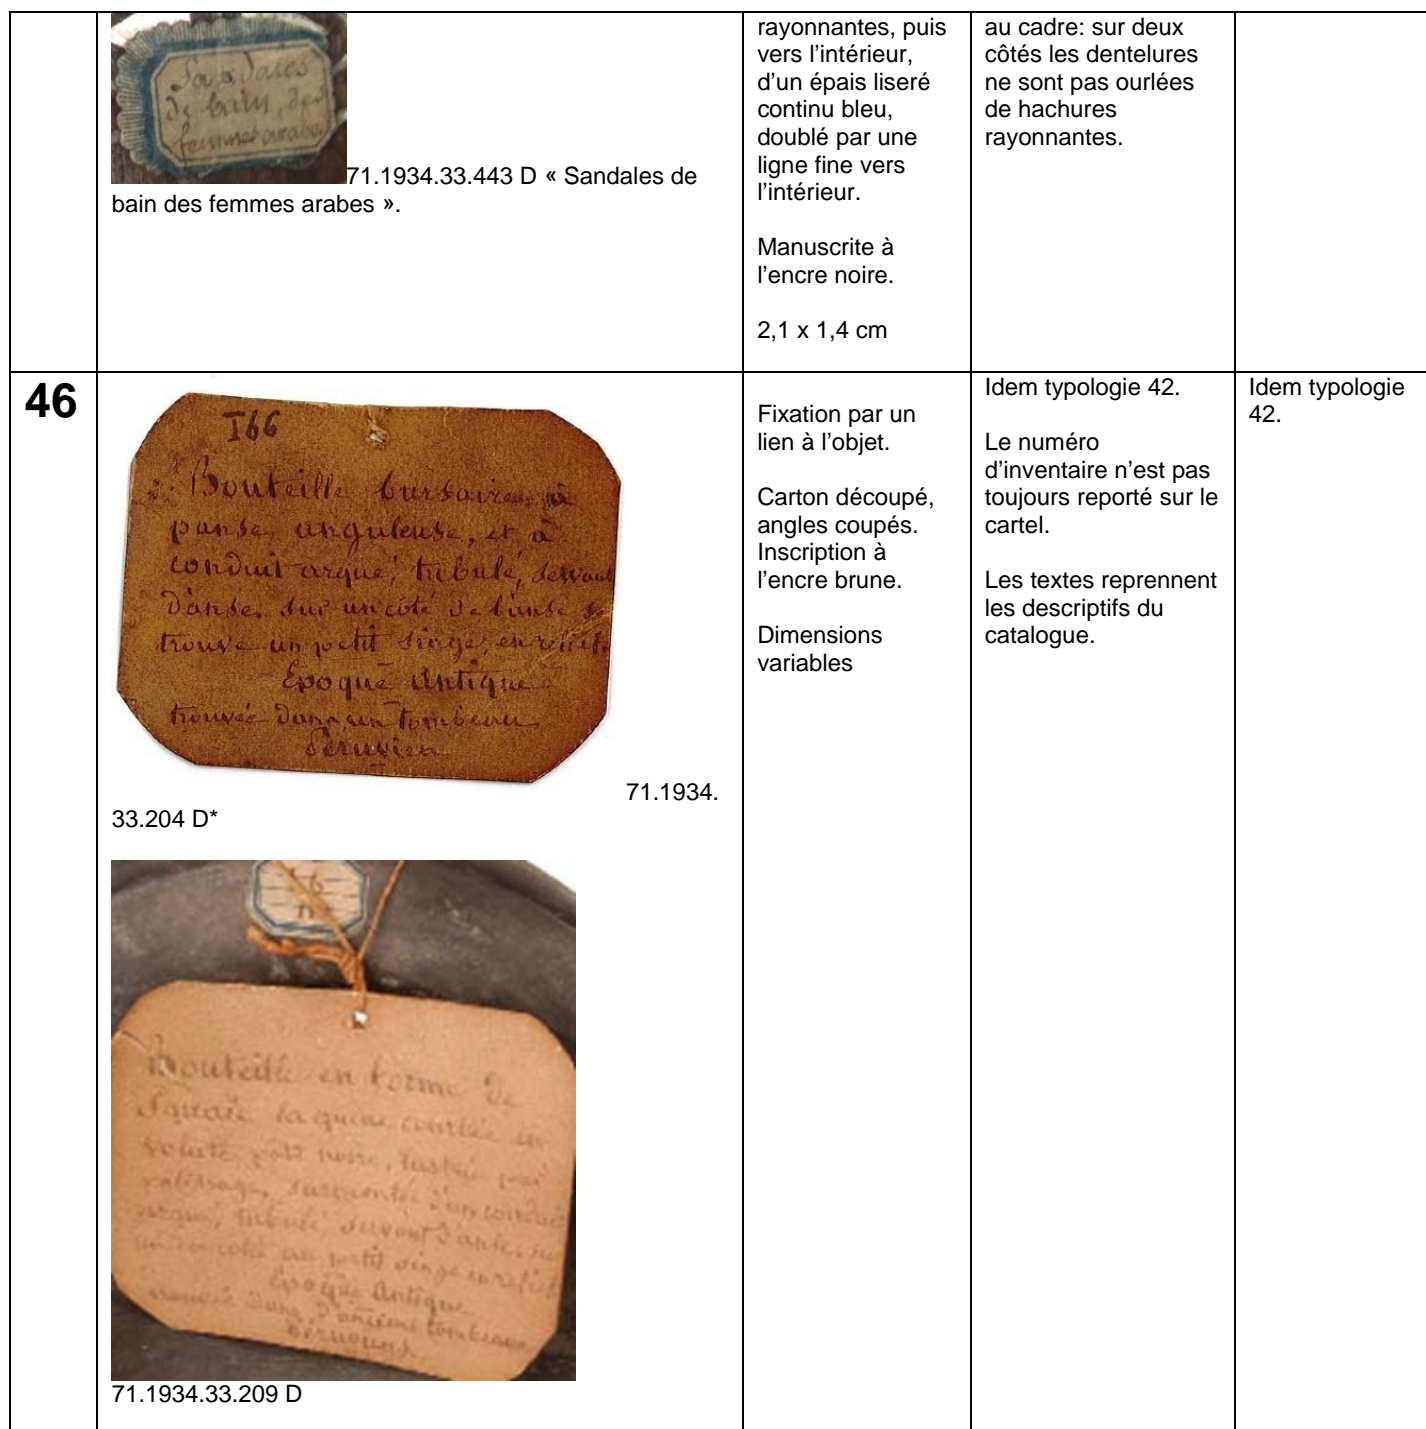 Sandales
de bain, des
femmes arabes
71.1934.33.443 D « Sandales de
bain des femmes arabes ».
rayonnantes, puis
vers l’intérieur,
d’un épais liseré
continu bleu,
doublé par une
ligne fine vers
l’intérieur.
Manuscrite à
l’encre noire.
2,1 x 1,4 cm
au cadre: sur deux
côtés les dentelures
ne sont pas ourlées
de hachures
rayonnantes.
46
I66
Bouteille bursaire, à
panse anguleuse, et à
conduit arqué, tubulé, servant
d'anse. sur un côté de l'anse se
trouve un petit singe, en relief.
Epoque Antique
trouvée dans un tombeau
Péruvien
71.1934.
33.204 D*
Bouteille en forme de
Squale la queue courbée en
volute, pate noire, lustrée par
polissage, surmontée d'un conduit
arqué, tubulé, servant d'anse, sur
un des cotés un petit singe en relief
Epoque Antique
trouvée dans d'anciens tombeaux
Péruviens.
71.1934.33.209 D
Fixation par un
lien à l’objet.
Carton découpé,
angles coupés.
Inscription à
l’encre brune.
Dimensions
variables
Idem typologie 42.
Le numéro
d’inventaire n’est pas
toujours reporté sur le
cartel.
Les textes reprennent
les descriptifs du
catalogue.
Idem typologie
42.